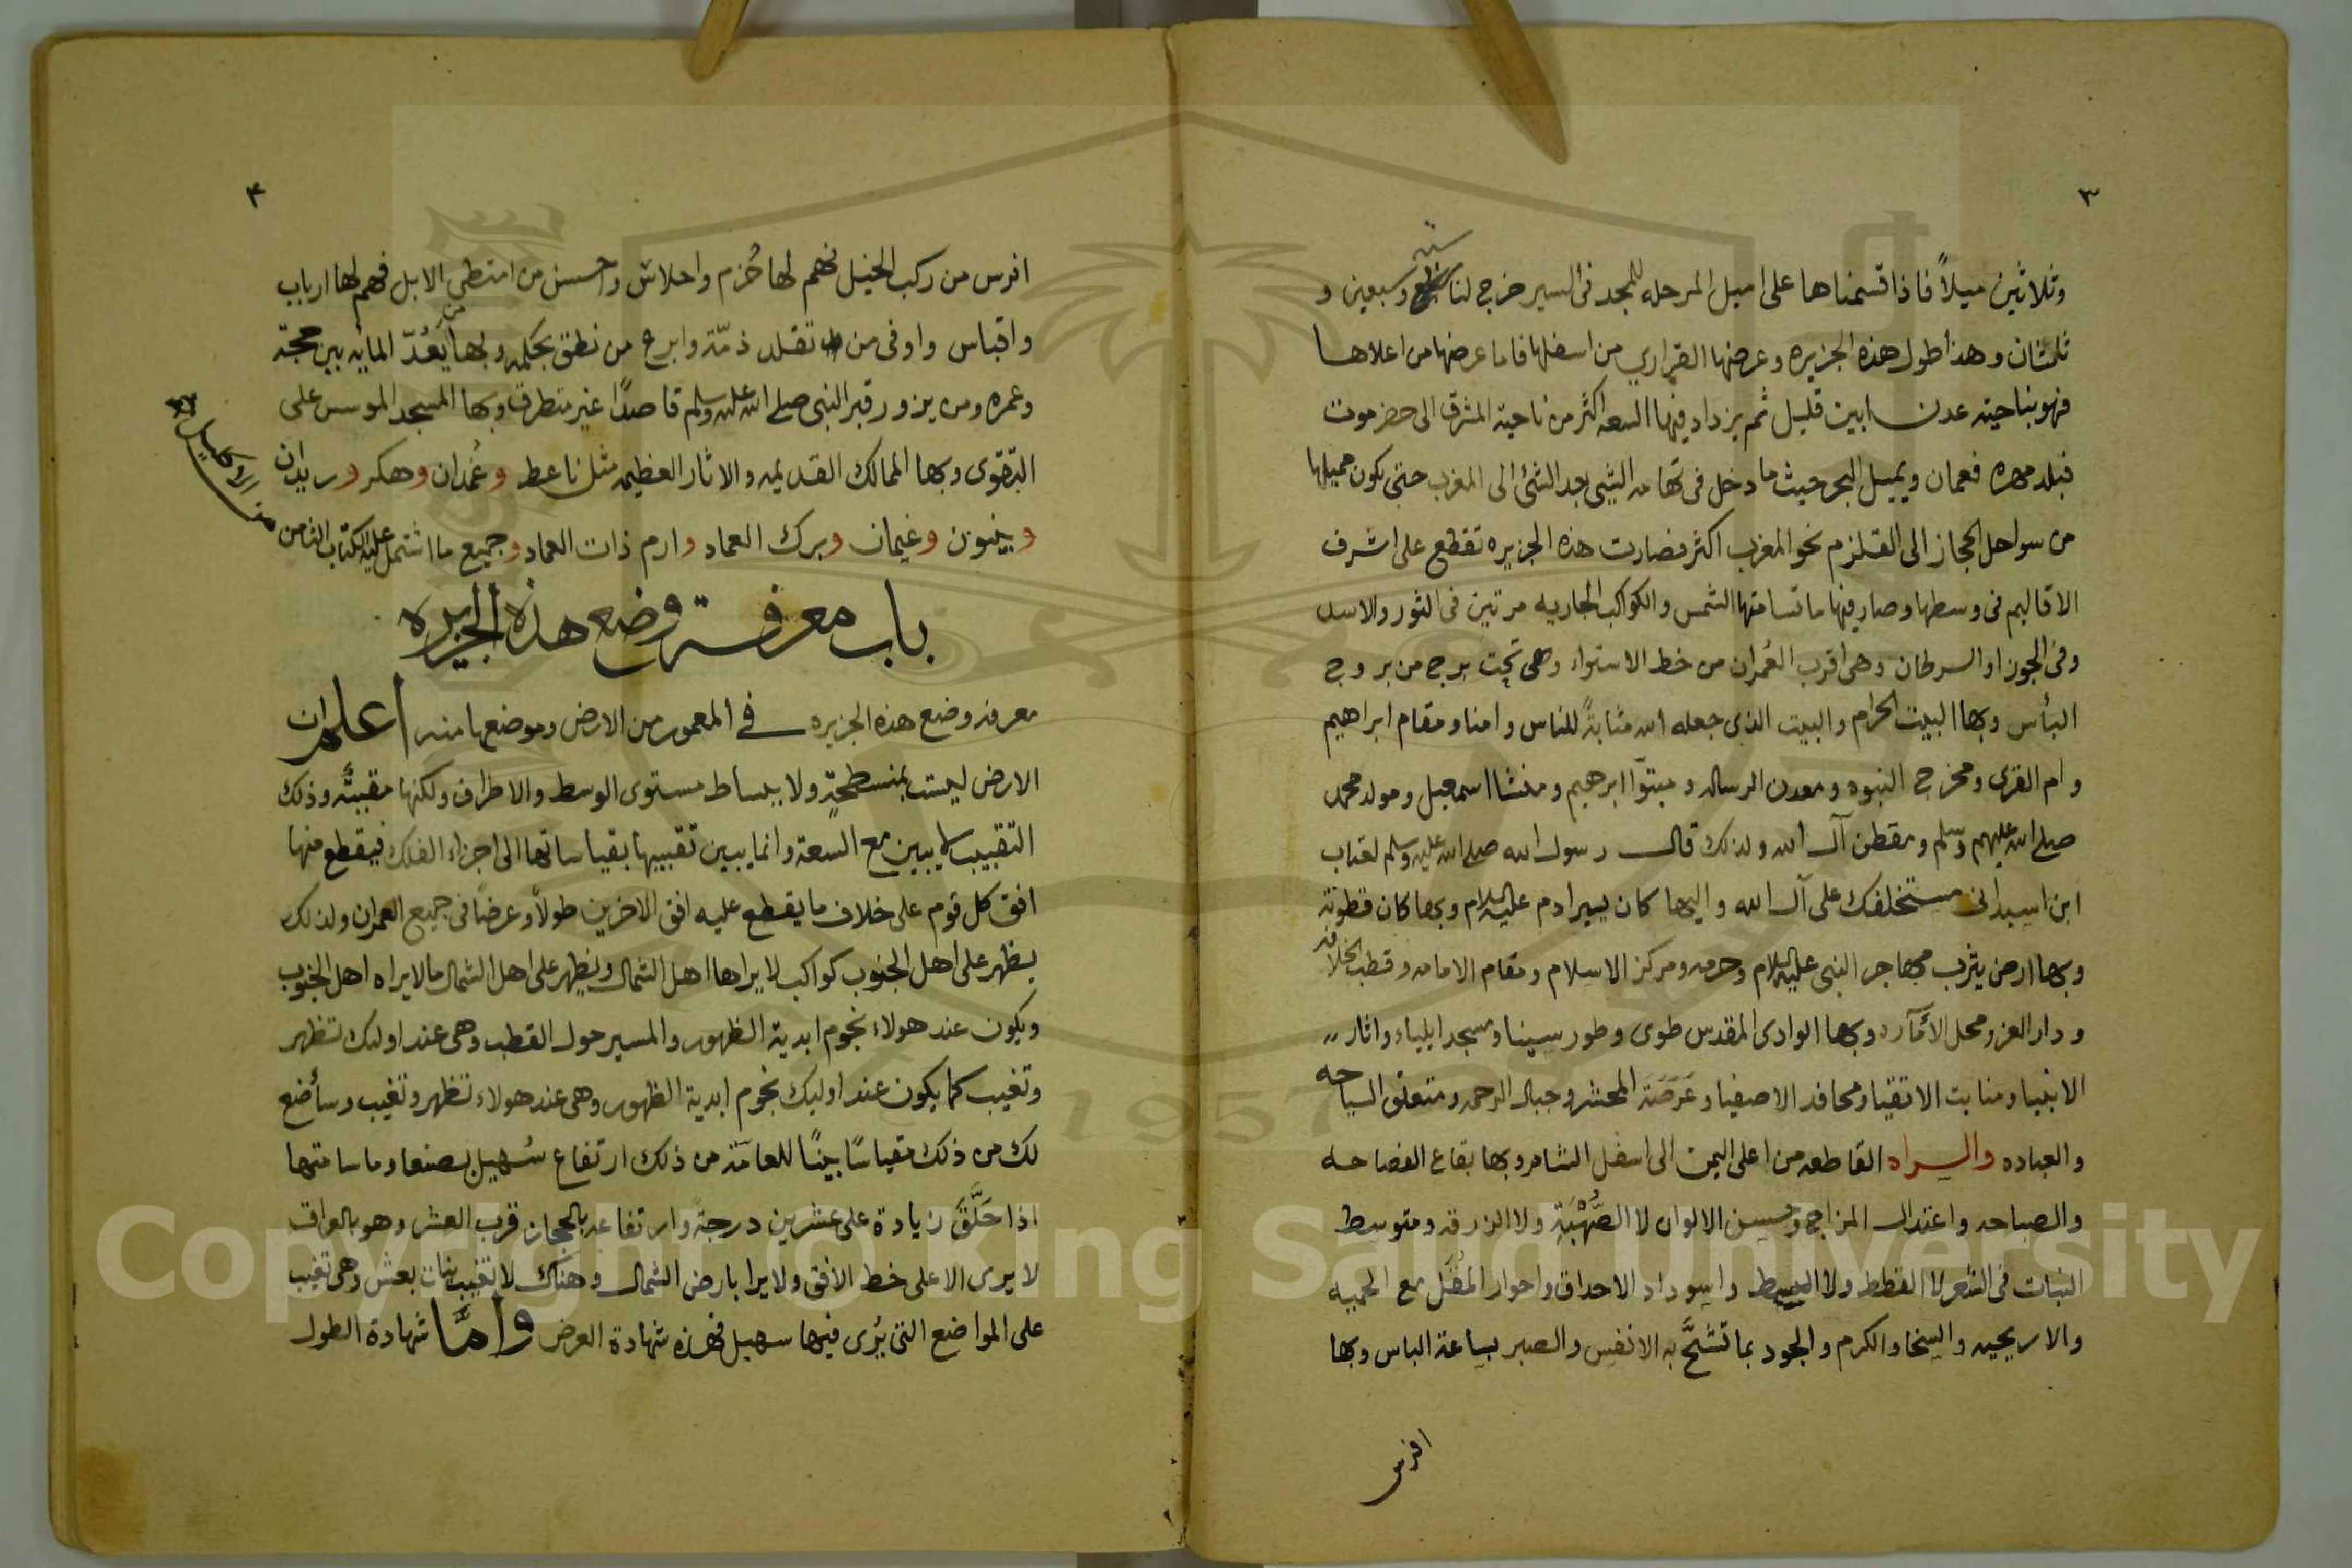 ٣
وثلاثين ميلاً فاذا قسمناها على اميل المرحله للمجد فى السير خرج لنا ستة وسبعين و
ثلثان وهذا طول هذه الجزيره وعرضها القراري من اسفلها فاما عرضها من اعلاها
فهو بناحيته عدن ابين قليل ثم يزداد فيها السعه اكثر من ناحية المشرق الى حضرموت
فبلد مهره فعمان ويميل البحر حيث ما دخل فى تهامه الشيى بعد الشئ الى المغرب حتى يكون مميلها
من سواحل الحجاز الى القلزم نحو المغرب اكثر فصارت هذه الجزيره تقطع على اشرف
الاقاليم فى وسطها وصار فيها ما تسامتها الشمس والكواكب الجاريه مرتين فى الثور والاسد
وفى الجوزا والسرطان وهى اقرب العُمران من خط الاستواء وهى تحت برج من بروج
البأس وبها البيت الحرام والبيت الذى جعله الله مثابةً للناس وامنا ومقام ابراهيم
وام القرى ومخرج النبوه ومعدن الرساله ومبتوّا ابرهيم ومنشا اسمعيل ومولد محمد
صلى الله عليهم وسلم ومقطن آل الله ولذلك قال رسول الله صلى الله عليه وسلم لعتاب
ابن اسيد انى مستخلفك على آل الله واليها كان يسير ادم عليه السلام وبها كان قطونته
وبها ارض يثرب مهاجر النبى عليه السلام وحرمه ومركز الاسلام ومقام الامامه وقطب الخلافه
ودار العز ومحل الأمآره وبها الوادى المقدس طوى وطور سينا ومسجد ايلياء واثار
الانبيا ومنابت الاتقيا ومحافد الاصفيا وعَرَصَة المحشر وجبال الرحمه ومتعلق السياحه
والعباده والسراه القاطعه من اعلى اليمن الى اسفل الشام وبها بقاع الفصاحه
والصباحه واعتدال المزاج وحسن الالوان لا الصُّهْبَة ولا الزرقه ومتوسط
النبات فى الشعر لا القطط ولا السبط واسوداد الاحداق واحوار المُقَل مع الحميه
والاريحيه والسخا والكرم والجود بما تشحّ به الانفس والصبر بساعة الباس وبها
افرس
٤
افرس من ركب الخيل فهم لها حُزم واحلاس واحسن من امتطى الابل فهم لها ارباب
واقباس واوفى من تقلد ذمّة وابرع من نطق بحكمه وبها من يَعُدّ المايه بين حجة
وعمره ومن يزور قبر النبى صلى الله عليه وسلم قاصدًا غير متطرف وبها المسجد الموسس على
التقوى وبها الممالك القديمه والاثار العظيمه مثل ناعط وغُمدان وهكر وريدان
وبينون وغيمان وبرك العماد وارم ذات العماد وجميع ما اشتمل عليه الكتاب الثامن
من الاكليل
باب معرفة وضع هذه الجزيره
معرفة وضع هذه الجزيره فى المعمور من الارض وموضعها منه اعلم ان
الارض ليست بمنسطحةٍ ولا ببساط مستوى الوسط والاطراف ولكنها مقببّة وذلك
التقبيب لا يبين مع السعة وانما يبين تقبيبها بقياساتها الى اجزاء الفلك فيقطع منها
افق كل قوم على خلاف ما يقطع عليه افق الاخرين طولاً وعرضًا فى جميع العمران ولذلك
يظهر على اهل الجنوب كواكب لا يراها اهل الشمال ويظهر على اهل الشمال ما لا يراه اهل الجنوب
ويكون عند هولاء نجوم ابدية الظهور والمسير حول القطب وهى عند اوليك تظهر
وتغيب كما يكون عند اوليك نجوم ابدية الظهور وهى عند هولاء تظهر وتغيب وسأضع
لك من ذلك مقياسًا بينًا للعامّة من ذلك ارتفاع سُهيل بصنعا وما سامتها
اذا حَلَّقَ زيادة على عشرين درجةً وارتفاعه بالحجاز قرب العشر وهو بالعراق
لا يرى الا على خط الافق ولا يرا بارض الشمال وهناك لا تغيب بنات نعش وهى تغيب
على المواضع التى يُرى فيها سهيل فهذه شهادة العرض وامَّا شهادة الطول
1957
Copyright © King Saud University